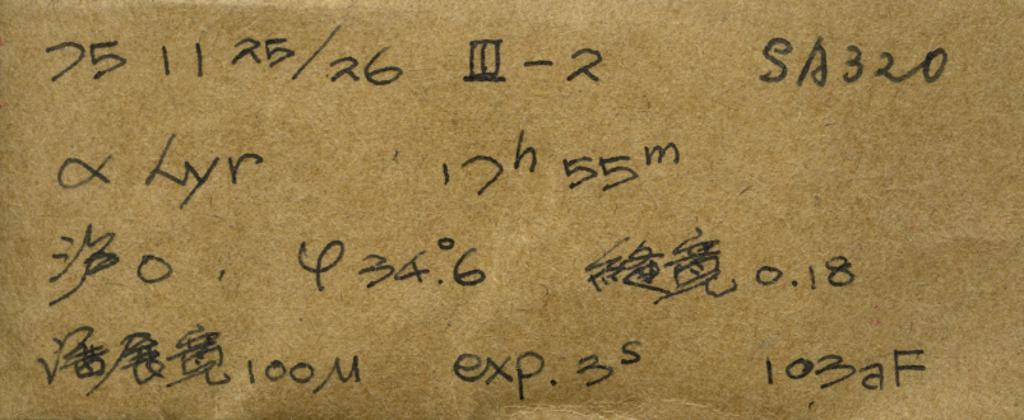 75 11 25/26 III-2 SA320
α Lyr 17h 55m
0. φ 34.°6 缝宽 0.18
展宽 100μ exp. 3s 103aF